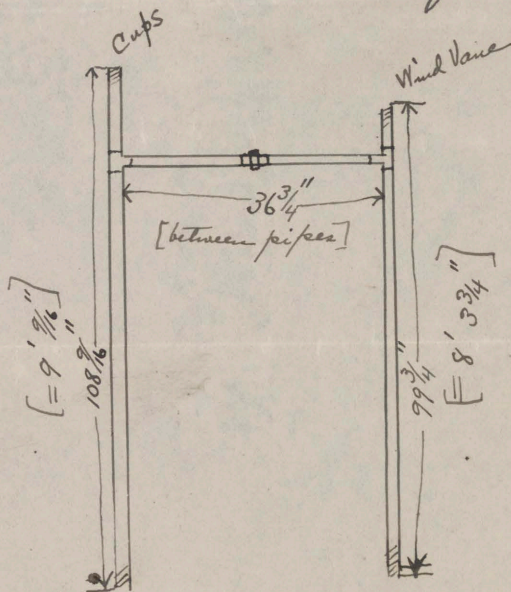 Cups
Wind Vane
36 3/4"
[between pipes]
[= 9' 9/16"]
108 9/16"
99 3/4"
[= 8' 3 3/4"]